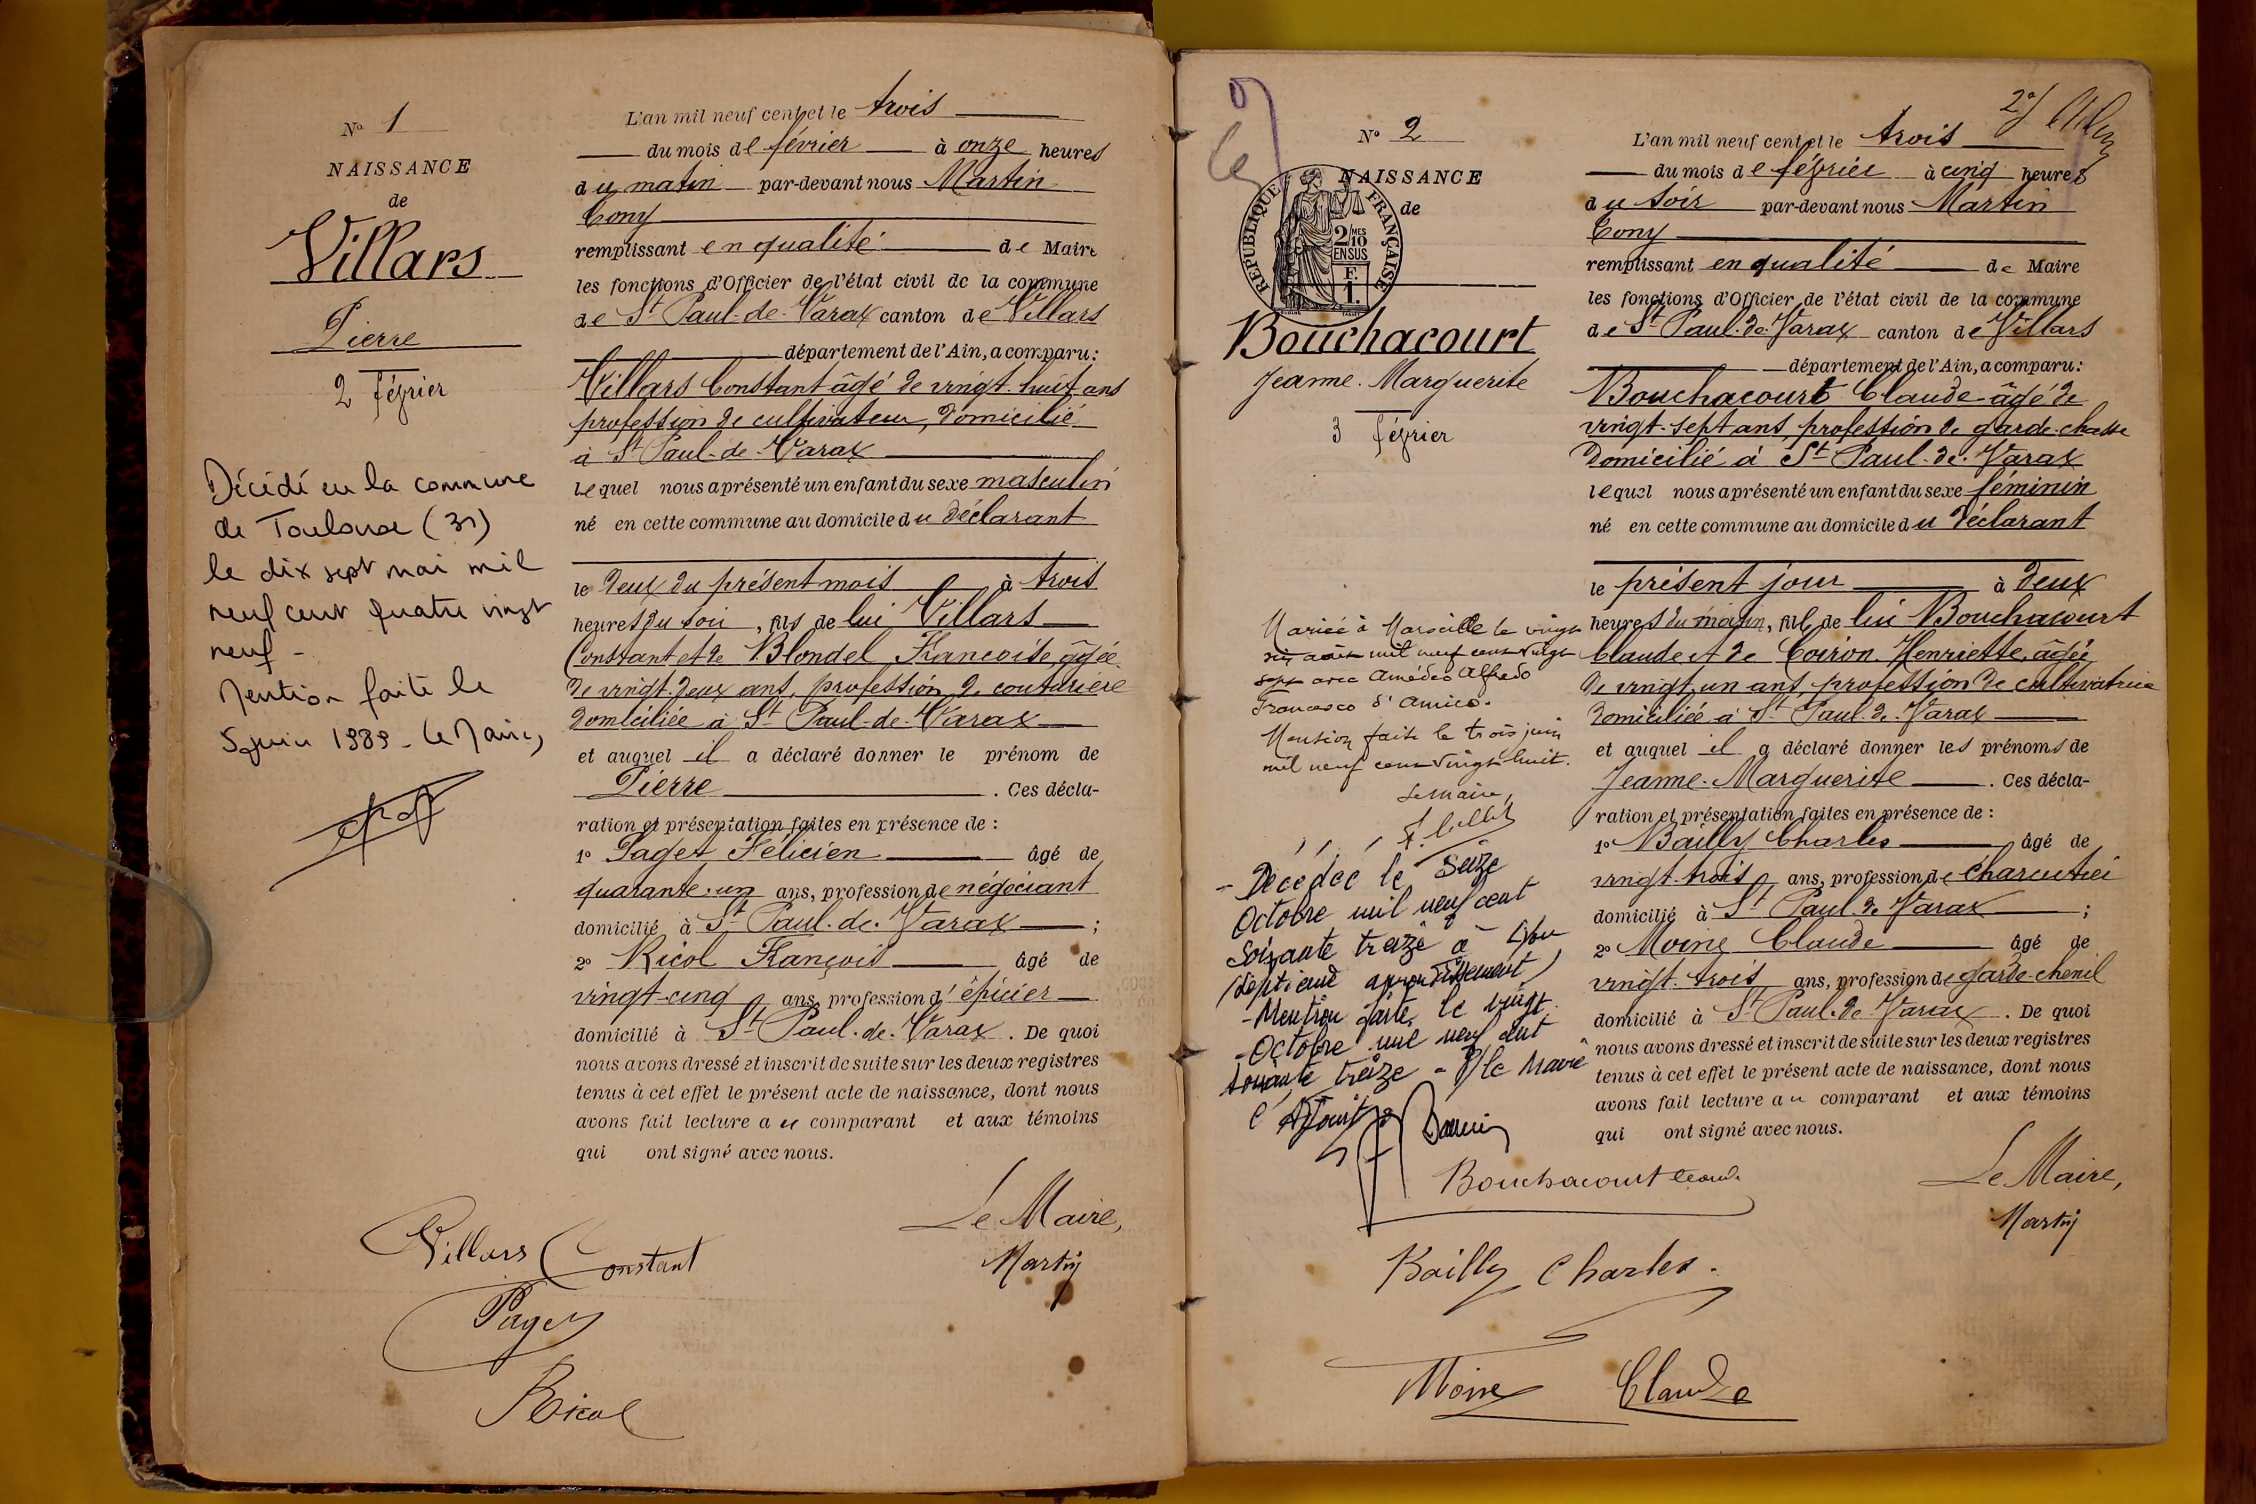 N° 1
NAISSANCE
de
Villars
Pierre
2 février
Décédé en la commune
de Toulouse (31)
le dix sept mai mil
neuf cent quatre vingt
neuf -
Mention faite le
5 juin 1989 - Le Maire,
L'an mil neuf cent et le trois
du mois de février à onze heures
du matin par-devant nous Martin
Cony
remplissant en qualité de Maire
les fonctions d'Officier de l'état civil de la commune
de St Paul-de-Varax canton de Villars
département de l'Ain, a comparu:
Villars Constant âgé de vingt-huit ans
profession de cultivateur, domicilié
à St Paul-de-Varax
lequel nous a présenté un enfant du sexe masculin
né en cette commune au domicile du déclarant
le deux du présent mois à trois
heures du soir, fils de lui Villars
Constant et de Blondel Francoise, âgée
de vingt-deux ans, profession de couturière
domiciliée à St Paul-de-Varax
et auquel il a déclaré donner le prénom de
Pierre. Ces décla-
ration et présentation faites en présence de :
1° Paget Félicien âgé de
quarante-un ans, profession de négociant
domicilié à St Paul-de-Varax ;
2° Ricol François âgé de
vingt-cinq ans, profession d'épicier
domicilié à St Paul-de-Varax. De quoi
nous avons dressé et inscrit de suite sur les deux registres
tenus à cet effet le présent acte de naissance, dont nous
avons fait lecture au comparant et aux témoins
qui ont signé avec nous.
Le Maire,
Martin
Villars Constant
Paget
Ricol
N° 2
NAISSANCE
de
RÉPUBLIQUE FRANÇAISE
2/10 MES
EN SUS
F.
1.
Bouchacourt
Jeanne-Marguerite
3 février
Mariée à Marseille le vingt
six août mil neuf cent vingt
sept avec Amédéo Alfredo
Francesco d'Amico.
Mention faite le trois juin
mil neuf cent vingt huit.
Le maire,
- Décédée le Seize
Octobre mil neuf cent
soixante treize à Lyon
(septième arrondissement)
- Mention faite le vingt
- Octobre mil neuf cent
soixante treize - P/le Maire
l'Adjoint
L'an mil neuf cent et le trois
du mois de février à cinq heures
du soir par-devant nous Martin
Cony
remplissant en qualité de Maire
les fonctions d'Officier de l'état civil de la commune
de St Paul-de-Varax canton de Villars
département de l'Ain, a comparu:
Bouchacourt Claude âgé de
vingt-sept ans, profession de garde-chasse
domicilié à St Paul-de-Varax
lequel nous a présenté un enfant du sexe féminin
né en cette commune au domicile du déclarant
le présent jour à deux
heures du matin, fille de lui Bouchacourt
Claude et de Coiron Henriette, âgée
de vingt-un ans, profession de cultivatrice
domiciliée à St Paul-de-Varax
et auquel il a déclaré donner les prénoms de
Jeanne-Marguerite. Ces décla-
ration et présentation faites en présence de :
1° Bailly Charles âgé de
vingt-trois ans, profession de charcutier
domicilié à St Paul-de-Varax ;
2° Moine Claude âgé de
vingt-trois ans, profession de garde-chenil
domicilié à St Paul-de-Varax. De quoi
nous avons dressé et inscrit de suite sur les deux registres
tenus à cet effet le présent acte de naissance, dont nous
avons fait lecture au comparant et aux témoins
qui ont signé avec nous.
Le Maire,
Martin
Bouchacourt
Bailly Charles.
Moine Claude